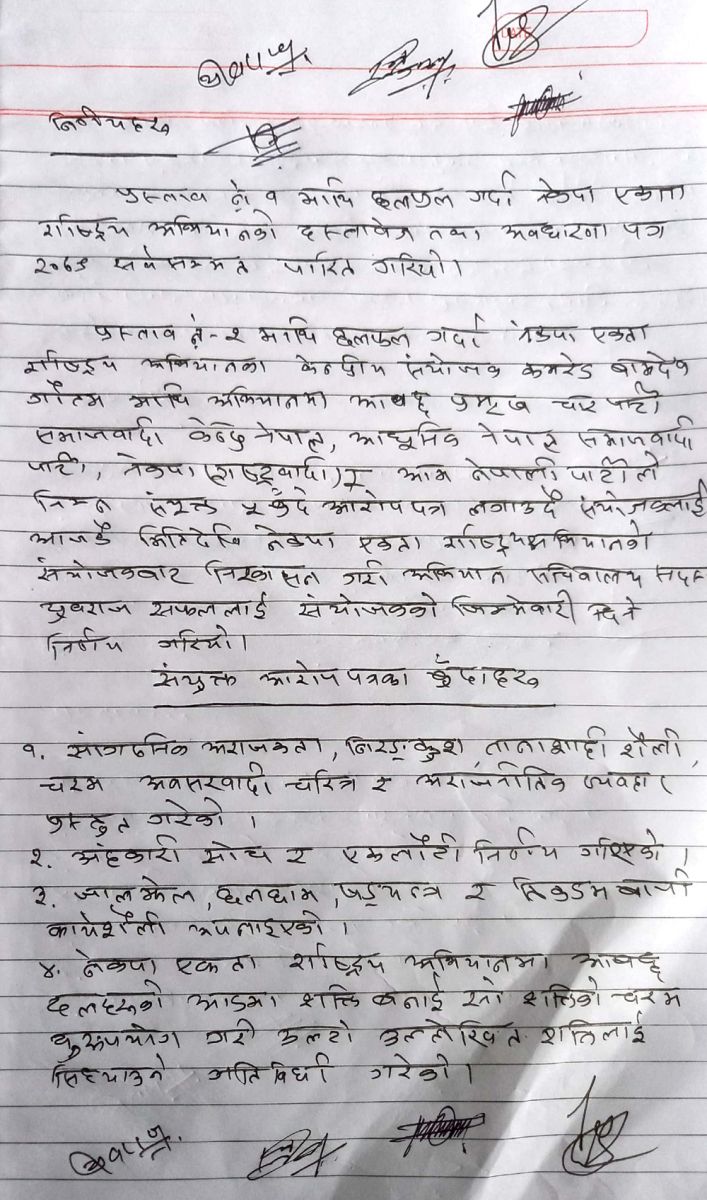 निर्णयहरु
प्रस्ताव नं १ माथि छलफल गर्दा नेकपा एकता
राष्ट्रिय अभियानको दस्तावेज तथा अवधारणा पत्र
२०७९ सर्वसम्मत पारित गरियो।
प्रस्ताव नं-२ माथि छलफल गर्दा नेकपा एकता
राष्ट्रिय अभियानका केन्द्रीय संयोजक कमरेड बामदेव
गौतम माथि अभियानमा आबद्ध प्रमुख चार पार्टी
समाजवादी केन्द्र नेपाल, आधुनिक नेपाल समाजवादी
पार्टी, नेकपा (राष्ट्रवादी) र आम नेपाली पार्टीले
निम्न संयुक्त बुँदे आरोपपत्र लगाउदै संयोजकलाई
आजकै मितिदेखि नेकपा एकता राष्ट्रिय अभियानको
संयोजकबाट निस्कासन गरी अभियान सचिवालय सदस्य
युवराज सफललाई संयोजकको जिम्मेवारी दिने
निर्णय गरियो।
संयुक्त आरोप पत्रका बुँदाहरु
१. सांगठनिक अराजकता, निरङ्कुश, तानाशाही शैली,
चरम अवसरवादी चरित्र र अराजनीतिक व्यवहार
प्रस्तुत गरेको ।
२. अंहकारी सोच र एकलौटी निर्णय गरिएको ।
३. जालझेल, छलछाम, षड्यन्त्र र तिकडमबाजी
कार्यशैली अपनाइएको ।
४. नेकपा एकता राष्ट्रिय अभियानमा आबद्ध
दलहरुको आडमा शक्ति बनाई सो शक्तिको चरम
दुरुपयोग गरी उल्टो उल्लेखित शक्तिलाई
सिध्याउने गतिविधी गरेको।